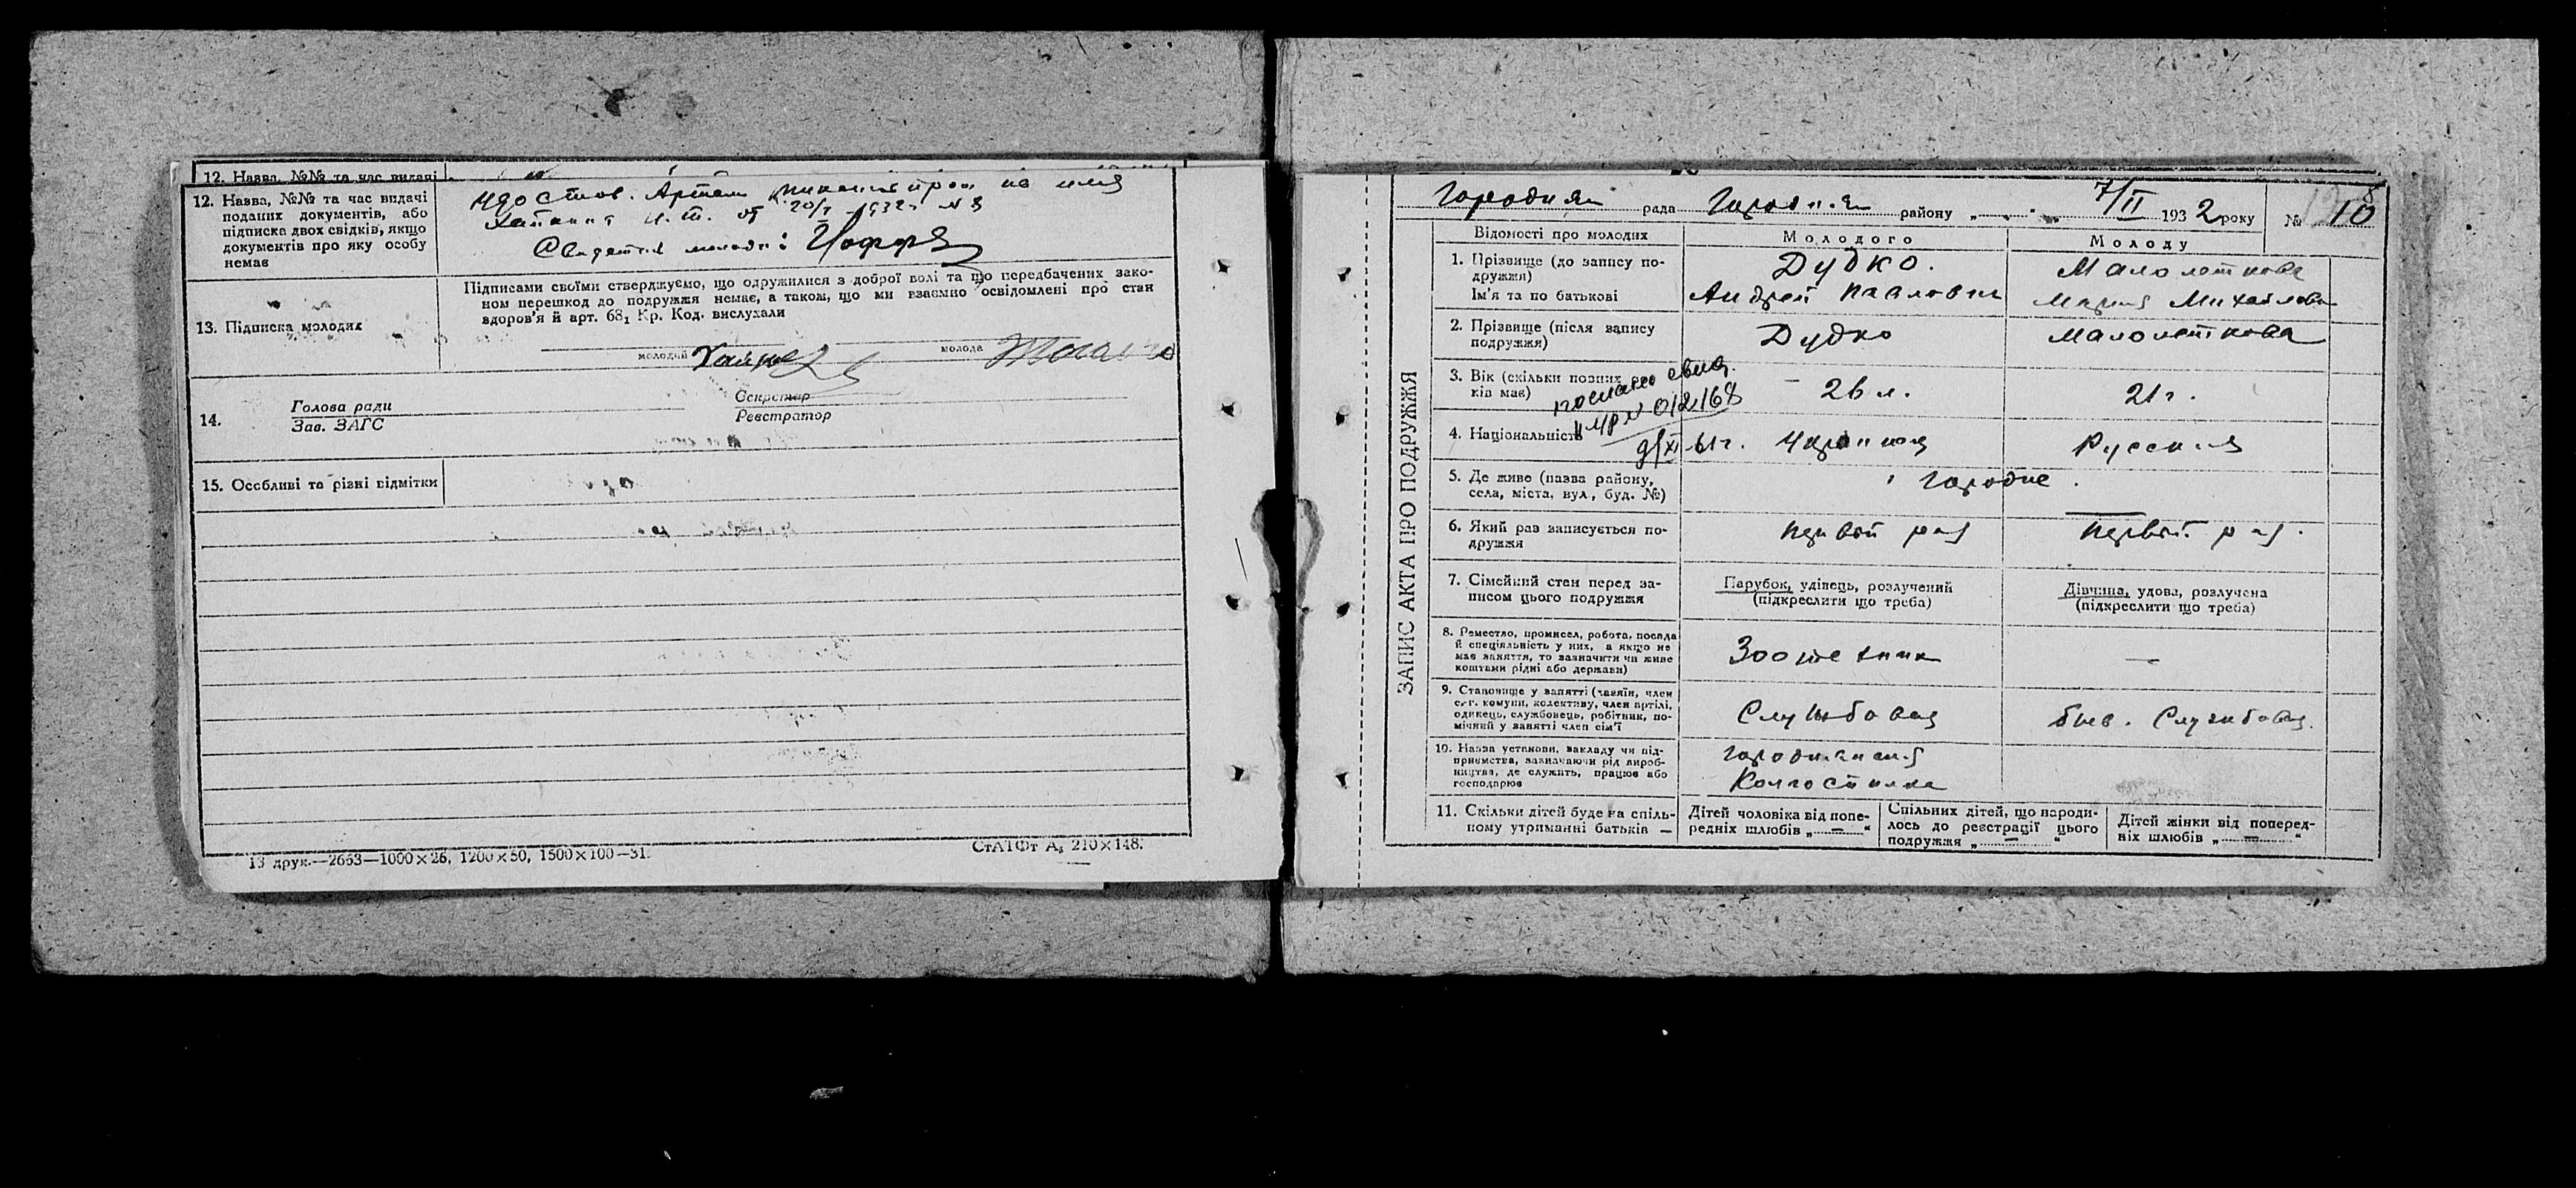 12. Назва, №№ та час видачі
12. Назва, №№ та час видачі
поданих документів, або
підписка двох свідків, якщо
документів про яку особу
немає
удостов. Артели на имя
от 20/I 1932 г. № 8
13. Підписка молодих
Підписами своїми стверджуємо, що одружилися з доброї волі та що передбачених зако-
ном перешкод до подружжя немає, а також, що ми взаємно освідомлені про стан
здоров'я й арт. 68₁ Кр. Код. вислухали
молодий
молода
14.
Голова ради
Зав. ЗАГС
Секретар
Реєстратор
15. Особливі та різні відмітки
13 друк.—2663—1000×26, 1200×50, 1500×100—31.
СтАТФт А₅ 210×148.
ЗАПИС АКТА ПРО ПОДРУЖЖЯ
рада
району
7/II 1932 року
№ 10
Відомості про молодих
Молодого
Молоду
1. Прізвище (до запису по-
дружжя)
Дудко.
Малолеткова
Ім'я та по батькові
Андрей Павлович
Мария Михайлова
2. Прізвище (після запису
подружжя)
Дудко
Малолеткова
3. Вік (скільки повних ро-
ків має)
26 л.
21 г.
послано свид.
№ 012168
9/XI-61г.
4. Національність
Русская
5. Де живе (назва району,
села, міста, вул., буд. №)
г. Городне.
6. Який раз записується по-
дружжя
первый раз
первый раз.
7. Сімейний стан перед за-
писом цього подружжя
Парубок, удівець, розлучений
(підкреслити що треба)
Дівчина, удова, розлучена
(підкреслити що треба)
8. Ремество, промисел, робота, посада
й спеціяльність у них, а якщо не
має заняття, то зазначити чи живе
коштами рідні або держави)
Зоотехник
—
9. Становище у занятті (хазяїн, член
с.-г. комуни, колективу, член артілі,
одинець, службовець, робітник, по-
мічний у занятті член сім'ї
Службовец
быв. Службовец.
10. Назва установи, закладу чи під-
приємства, зазначаючи рід вироб-
ництва, де служить, працює або
господарює
11. Скільки дітей буде на спіль-
ному утриманні батьків —
Дітей чоловіка від попе-
редніх шлюбів „ — “
Спільних дітей, що народи-
лось до реєстрації цього
подружжя „ — “
Дітей жінки від поперед-
ніх шлюбів „ — “